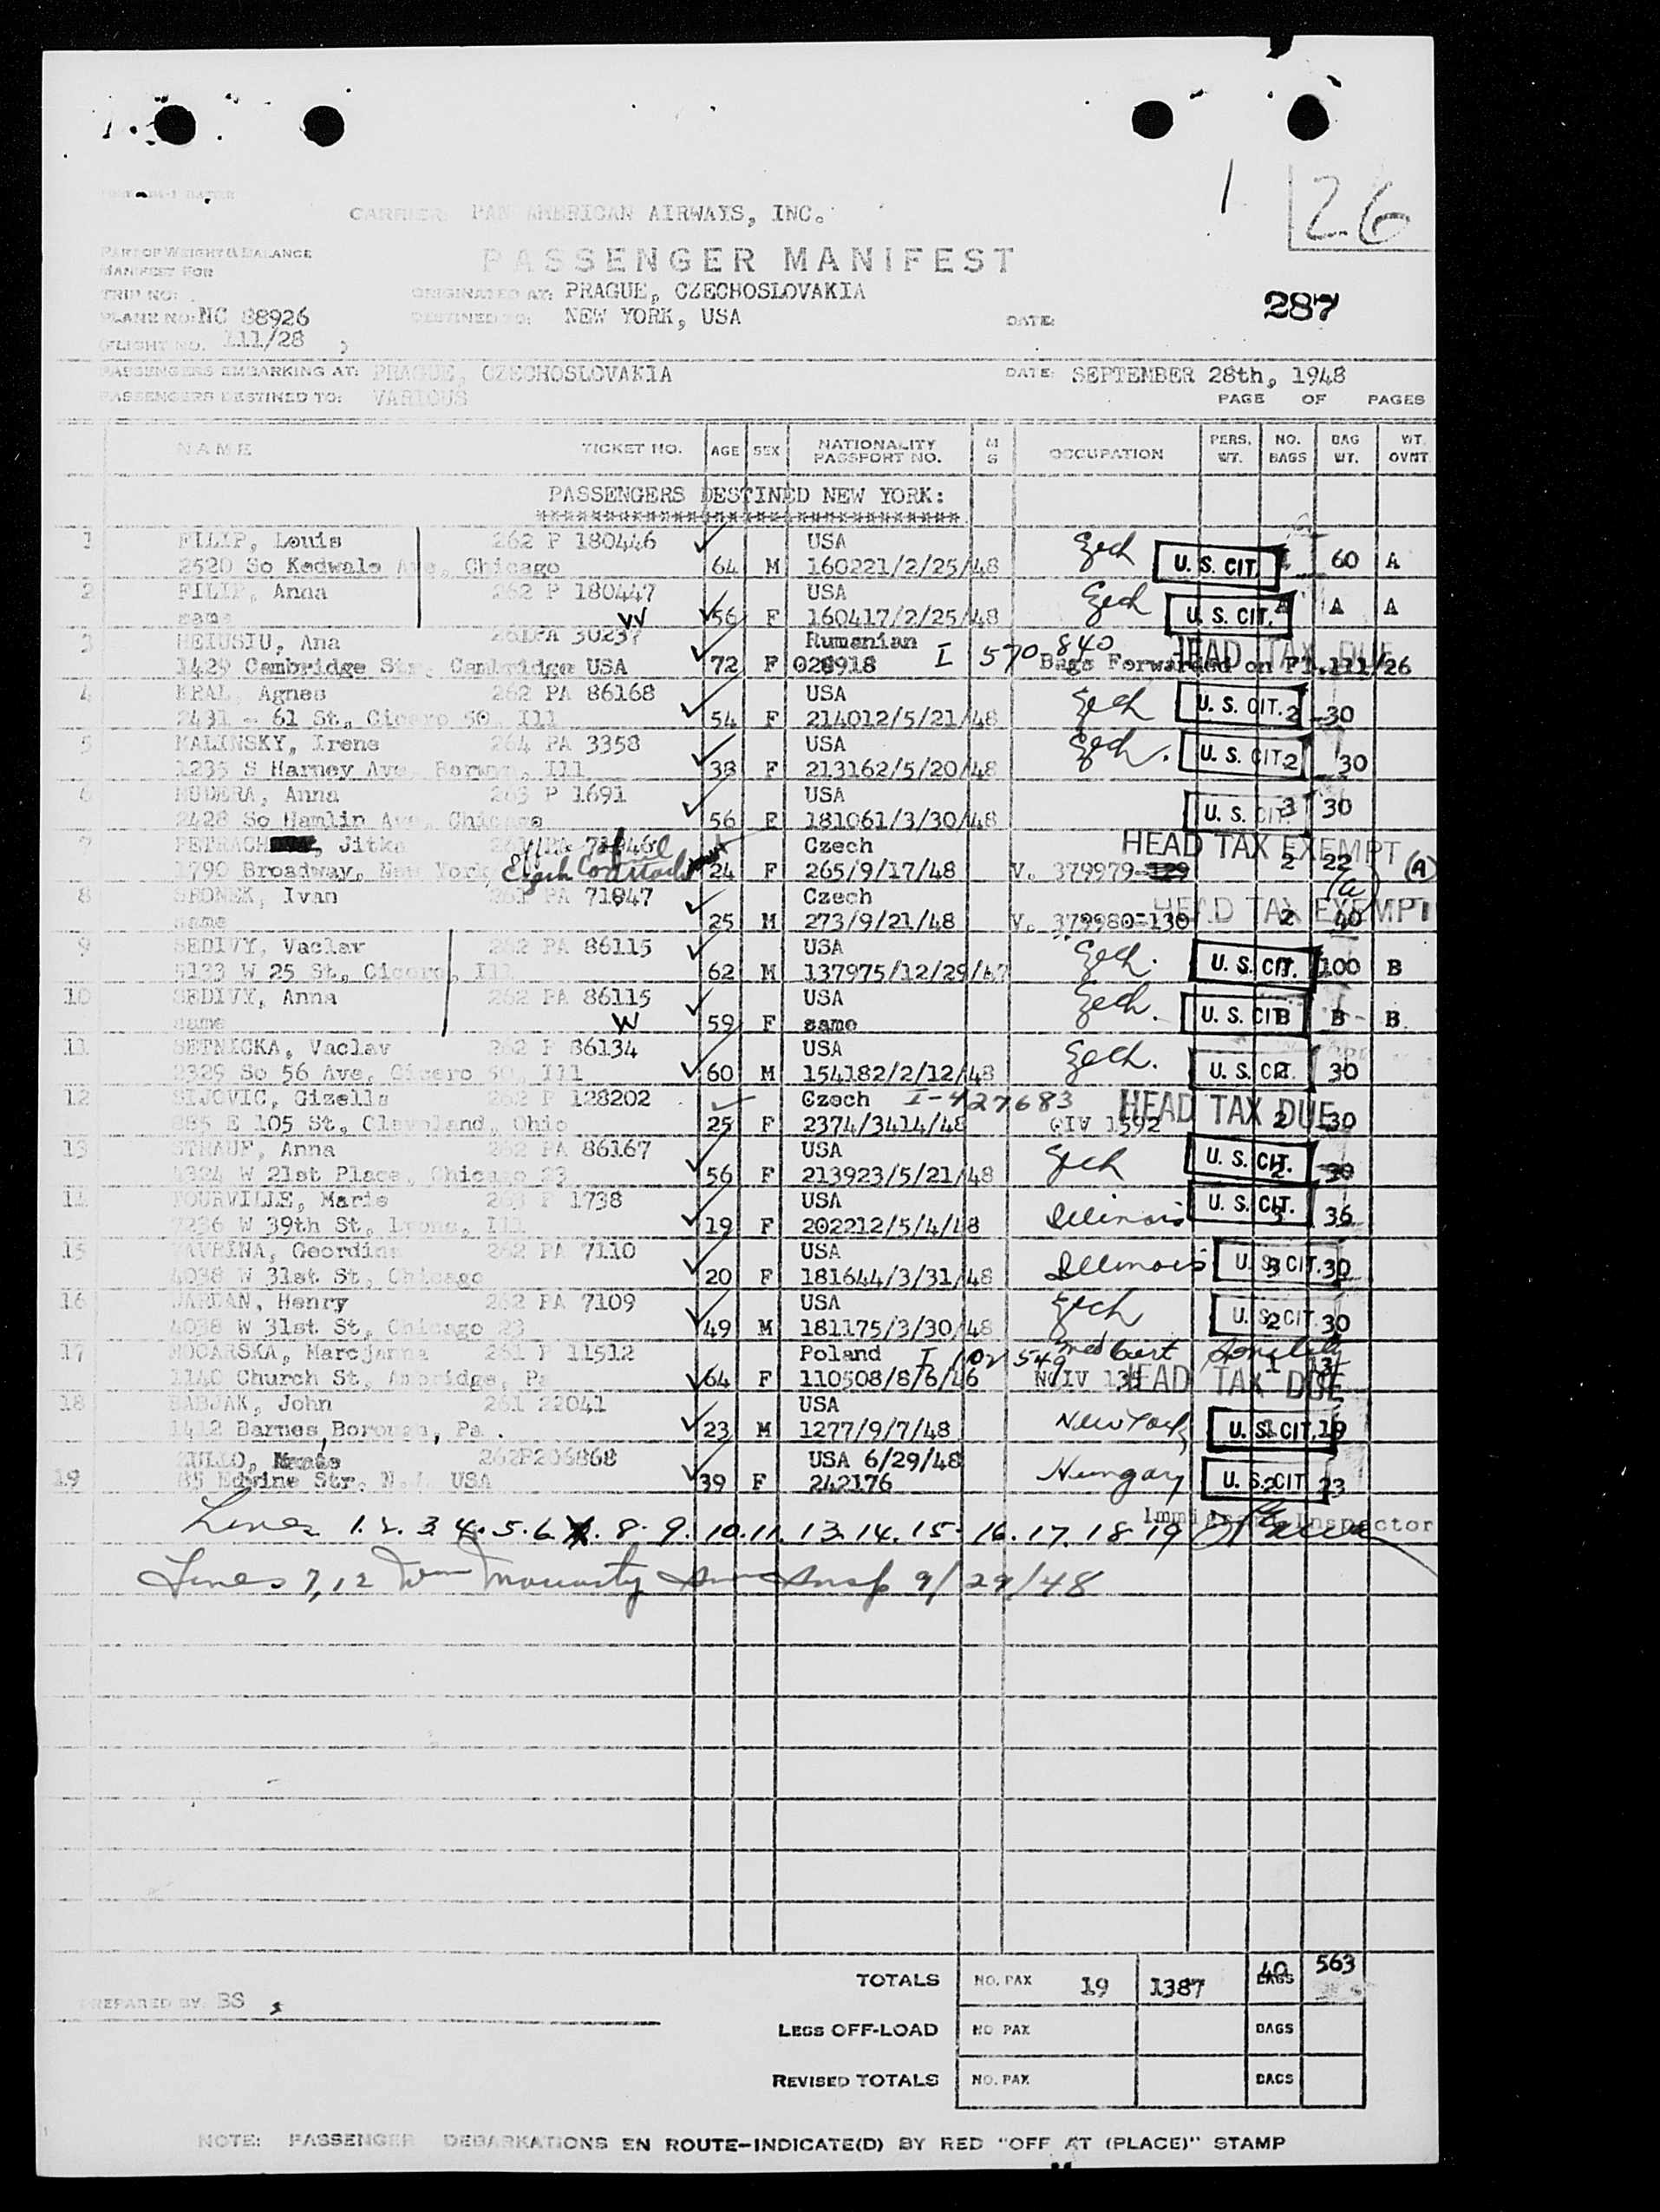 1 26
CARRIER: PAN AMERICAN AIRWAYS, INC.
PART OF WEIGHT & BALANCE
MANIFEST FOR
PASSENGER MANIFEST
TRIP NO:
ORIGINATED AT: PRAGUE, CZECHOSLOVAKIA
287
PLANE NO: NC 88926
DESTINED TO: NEW YORK, USA
DATE:
(FLIGHT NO. 111/28 )
PASSENGERS EMBARKING AT: PRAGUE, CZECHOSLOVAKIA DATE: SEPTEMBER 28th, 1948
PASSENGERS DESTINED TO: VARIOUS PAGE OF PAGES
NAME TICKET NO. AGE SEX NATIONALITY PASSPORT NO. M S OCCUPATION PERS. WT. NO. BAGS BAG WT. WT. OVNT
PASSENGERS DESTINED NEW YORK:
1 FILIP, Louis 262 P 180446 USA Czech
2520 So Kedwale Ave, Chicago 64 M 160221/2/25/48 U. S. CIT. 60 A
2 FILIP, Anna 262 P 180447 USA Czech
same W 56 F 160417/2/25/48 U. S. CIT. A A A
3 HEIUSIU, Ana 261PA 30237 Rumanian 840 HEAD TAX DUE
1429 Cambridge Str. Cambridge USA 72 F 028918 I 570 Bags Forwarded on Fl.111/26
4 KRAL, Agnes 262 PA 86168 USA Czech
2431 - 61 St, Cicero 50, Ill 54 F 214012/5/21/48 U. S. CIT. 2 30
5 MALINSKY, Irene 264 PA 3358 USA Czech.
1235 S Harney Ave Berwyn, Ill 38 F 213162/5/20/48 U. S. CIT. 2 30
6 MUDERA, Anna 263 P 1691 USA
2428 So Hamlin Ave, Chicago 56 F 181061/3/30/48 U. S. CIT. 3 30
7 PETRACH, Jitka Czech HEAD TAX EXEMPT
1790 Broadway, New York 24 F 265/9/17/48 V. 379979-129 2 22 (A)
8 SRONEK, Ivan 261 PA 71847 Czech HEAD TAX EXEMPT (a)
same 25 M 273/9/21/48 V. 379980-130 2 40
9 SEDIVY, Vaclav 262 PA 86115 USA Czech.
5133 W 25 St, Cicero, Ill 62 M 137975/12/29/47 U. S. CIT. 100 B
10 SEDIVY, Anna 262 PA 86115 USA Czech.
same W 59 F same U. S. CIT. B B B
11 SETNICKA, Vaclav 262 P 86134 USA Czech.
2329 So 56 Ave, Cicero 50, Ill 60 M 154182/2/12/48 U. S. CIT. 2 30
12 SIJOVIC, Gizella 262 P 128202 Czech I-427683 HEAD TAX DUE
885 E 105 St, Cleveland, Ohio 25 F 2374/3414/48 QIV 1592 2 30
13 STRAUF, Anna 262 PA 86167 USA Czech
4324 W 21st Place, Chicago 23 56 F 213923/5/21/48 U. S. CIT. 2 30
14 TOURVILLE, Marie 263 P 1738 USA Illinois
7236 W 39th St, Lyons, Ill 19 F 202212/5/4/48 U. S. CIT. 3 36
15 VAVRINA, Geordine 262 PA 7110 USA Illinois
4038 W 31st St, Chicago 20 F 181644/3/31/48 U. S. CIT. 3 30
16 JARDAN, Henry 262 PA 7109 USA Czech
4038 W 31st St, Chicago 23 49 M 181175/3/30/48 U. S. CIT. 2 30
17 MOCARSKA, Marcjanna 261 P 11512 Poland I 102 549 Med Cert
1140 Church St, Ambridge, Pa 64 F 110508/8/6/46 NQIV HEAD TAX DUE
18 BABJAK, John 261 22041 USA
1412 Barnes Borough, Pa. 23 M 1277/9/7/48 New York U. S. CIT. 19
ZULLO, 262P205868 USA 6/29/48
19 85 Str. N.J. USA 39 F 242176 Hungary U. S. CIT. 2 23
Immigrant Inspector
Lines 1. 2. 3. 4. 5. 6. 8. 9. 10. 11. 13. 14. 15. 16. 17. 18. 19
Lines 7, 12 Wm Moriarty Imm Insp 9/29/48
TOTALS NO. PAX 19 1387 40 BAGS 563
PREPARED BY: BS
LEGS OFF-LOAD NO PAX BAGS
REVISED TOTALS NO. PAX BAGS
NOTE: PASSENGER DEBARKATIONS EN ROUTE-INDICATE(D) BY RED "OFF AT (PLACE)" STAMP